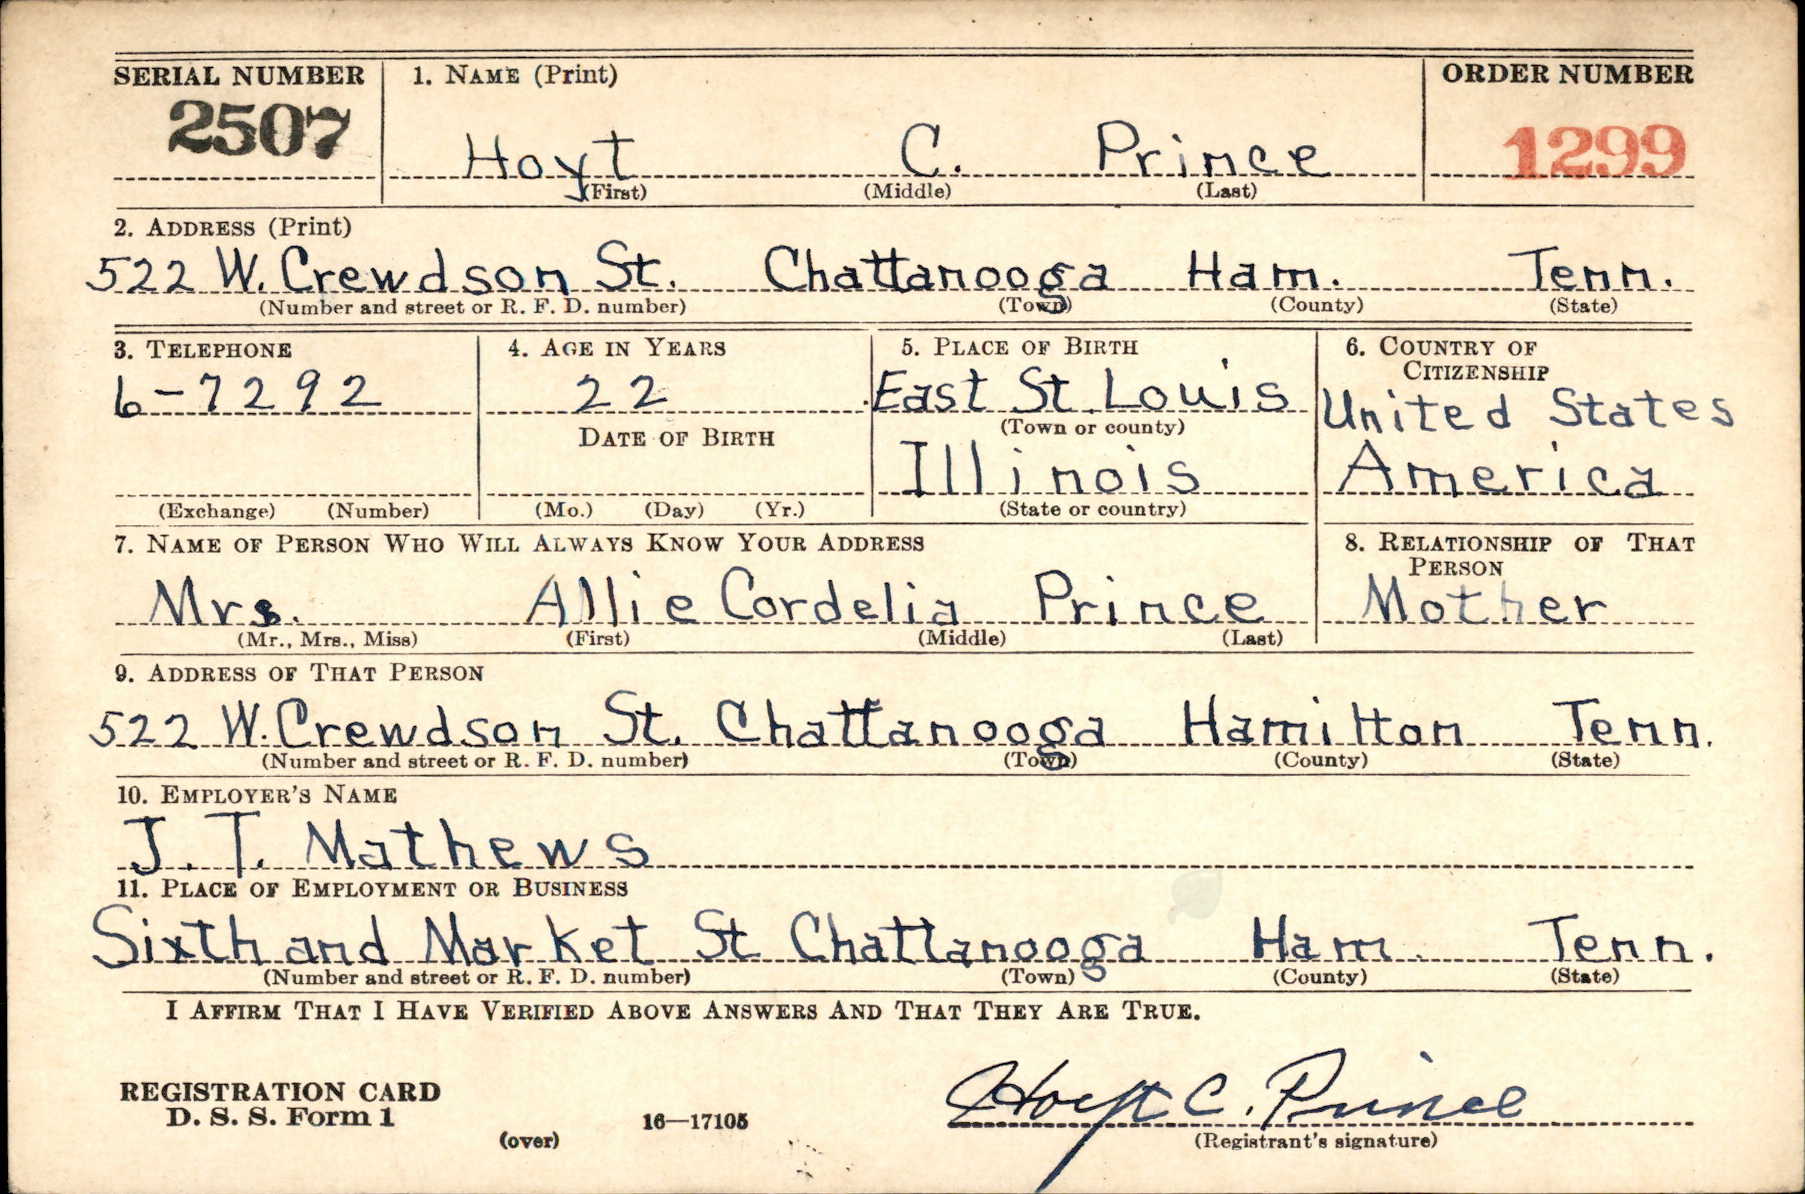 SERIAL NUMBER 1. NAME (Print) ORDER NUMBER
2507 Hoyt C. Prince 1299
(First) (Middle) (Last)
2. ADDRESS (Print)
522 W. Crewdson St. Chattanooga Ham. Tenn.
(Number and street or R. F. D. number) (Town) (County) (State)
3. TELEPHONE 4. AGE IN YEARS 5. PLACE OF BIRTH 6. COUNTRY OF
CITIZENSHIP
6-7292 22 East St. Louis United States
DATE OF BIRTH (Town or county)
Illinois America
(Exchange) (Number) (Mo.) (Day) (Yr.) (State or country)
7. NAME OF PERSON WHO WILL ALWAYS KNOW YOUR ADDRESS 8. RELATIONSHIP OF THAT
PERSON
Mrs. Allie Cordelia Prince Mother
(Mr., Mrs., Miss) (First) (Middle) (Last)
9. ADDRESS OF THAT PERSON
522 W. Crewdson St. Chattanooga Hamilton Tenn.
(Number and street or R. F. D. number) (Town) (County) (State)
10. EMPLOYER'S NAME
J. T. Mathews
11. PLACE OF EMPLOYMENT OR BUSINESS
Sixth and Market St Chattanooga Ham. Tenn.
(Number and street or R. F. D. number) (Town) (County) (State)
I AFFIRM THAT I HAVE VERIFIED ABOVE ANSWERS AND THAT THEY ARE TRUE.
REGISTRATION CARD
D. S. S. Form 1 16—17105 Hoyt C. Prince
(over) (Registrant's signature)